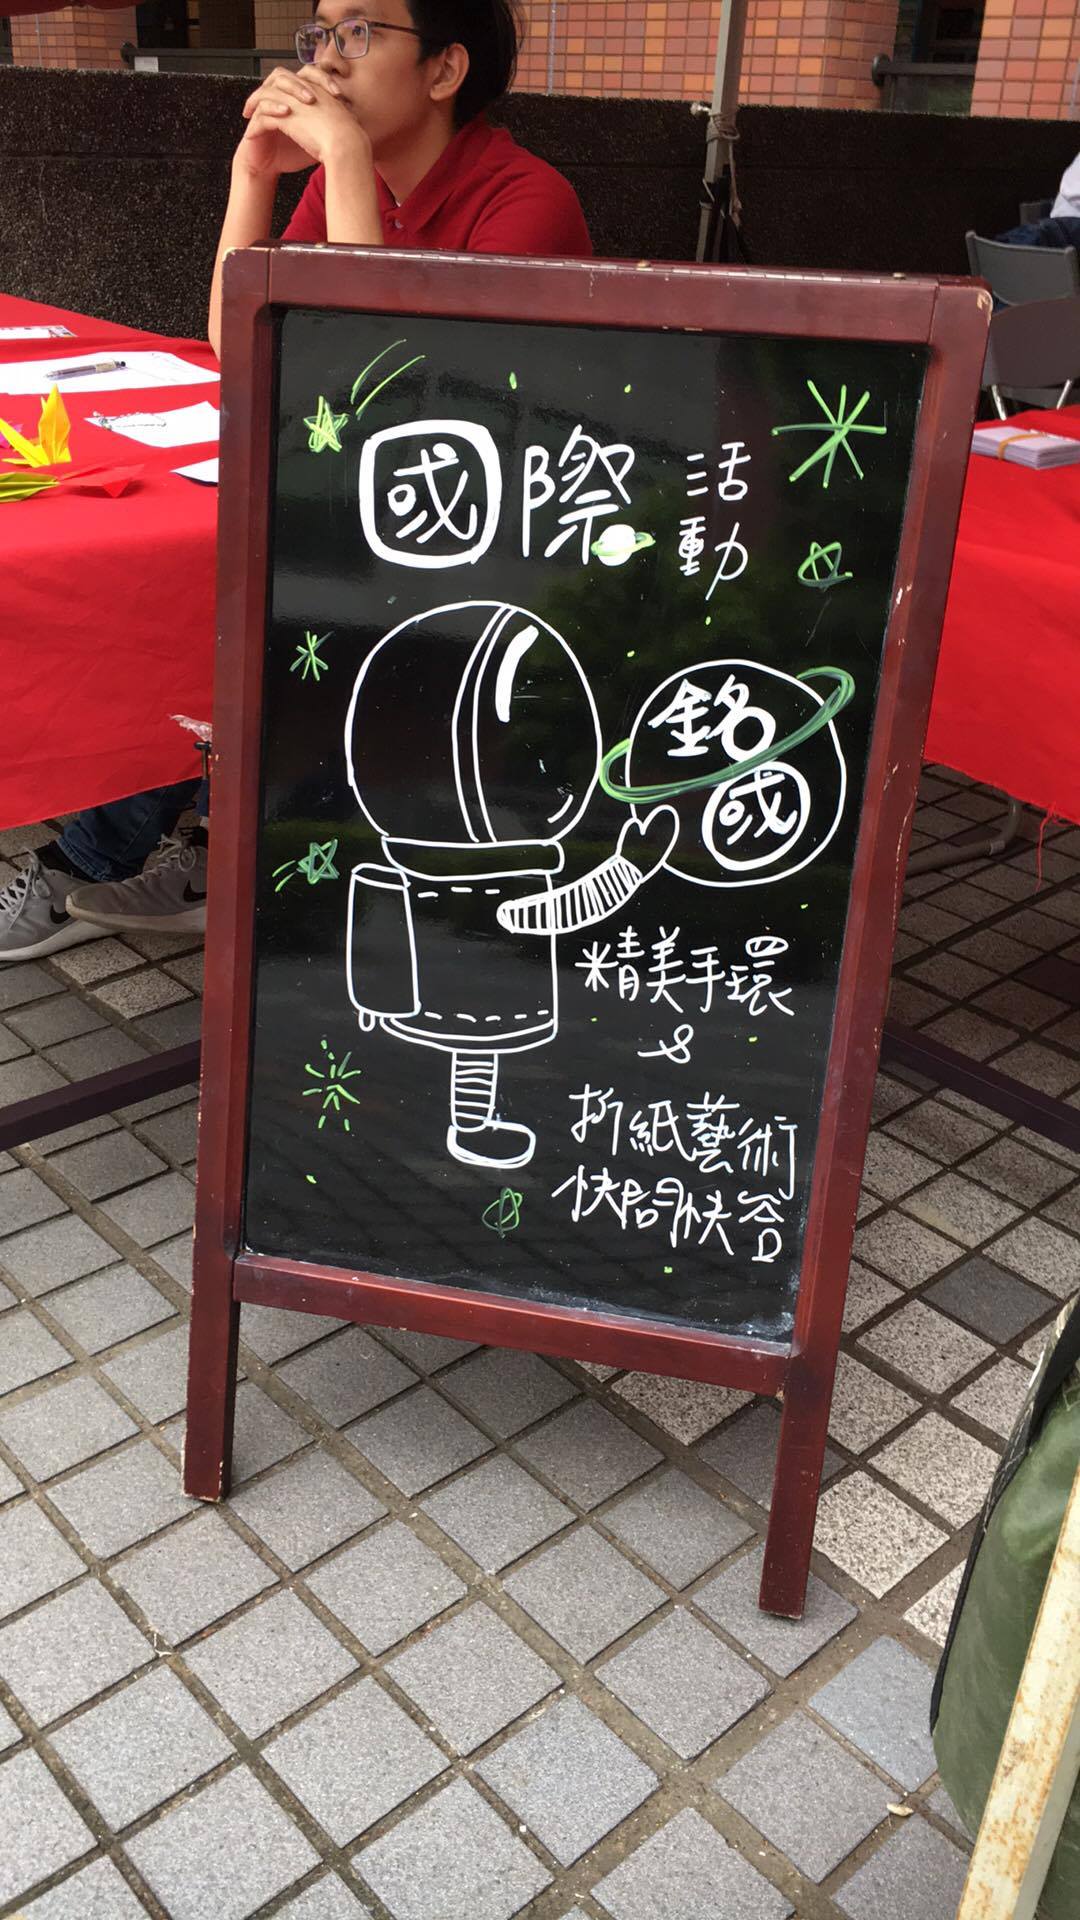 國際 活動
銘國
精美手環
&
折紙藝術
快問快答